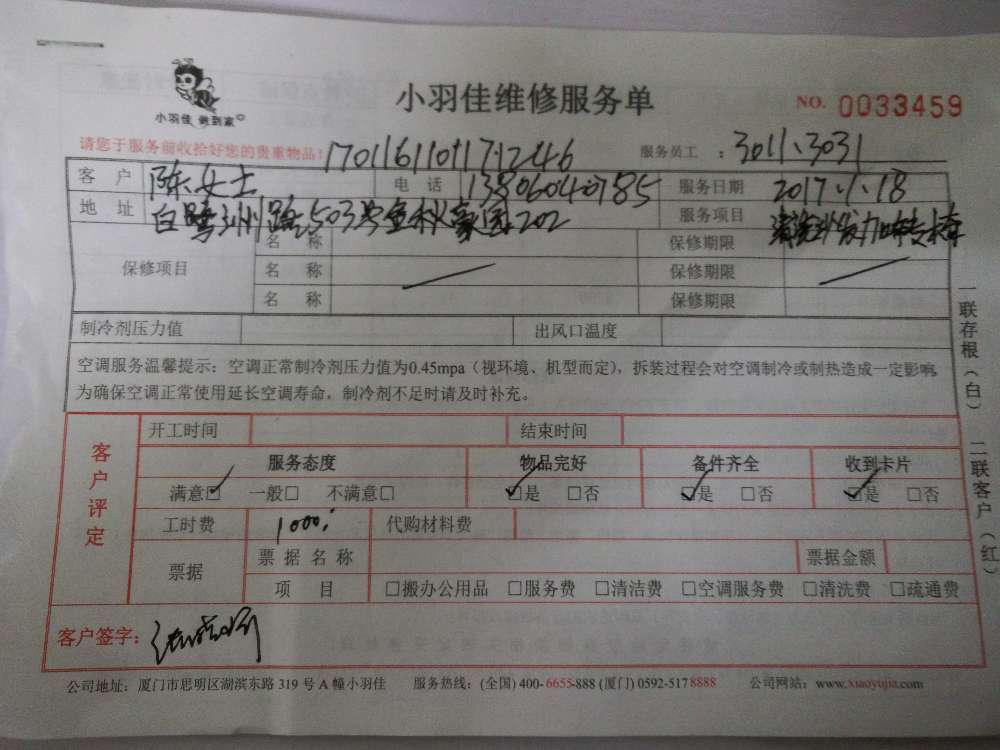 小羽佳 做到家
小羽佳维修服务单
NO. 0033459
请您于服务前收拾好您的贵重物品!
服务员工 : 3011、3031
客户 陈女士 电话 服务日期 2017.1.18
地址 白鹭洲路503号 202 服务项目 清洗沙发
保修项目 名称 保修期限
名称 保修期限
名称 保修期限
制冷剂压力值 出风口温度
空调服务温馨提示: 空调正常制冷剂压力值为0.45mpa(视环境、机型而定),拆装过程会对空调制冷或制热造成一定影响,
为确保空调正常使用延长空调寿命,制冷剂不足时请及时补充。
客户评定
开工时间 结束时间
服务态度 物品完好 备件齐全 收到卡片
满意□ 一般□ 不满意□ □是 □否 □是 □否 □是 □否
工时费 1000 代购材料费
票据 票据名称 票据金额
项目 □搬办公用品 □服务费 □清洁费 □空调服务费 □清洗费 □疏通费
客户签字:
公司地址: 厦门市思明区湖滨东路 319 号 A 幢小羽佳 服务热线: (全国) 400-6655-888 (厦门) 0592-5178888 公司网站: www.xiaoyujia.com
一联存根(白) 二联客户(红)